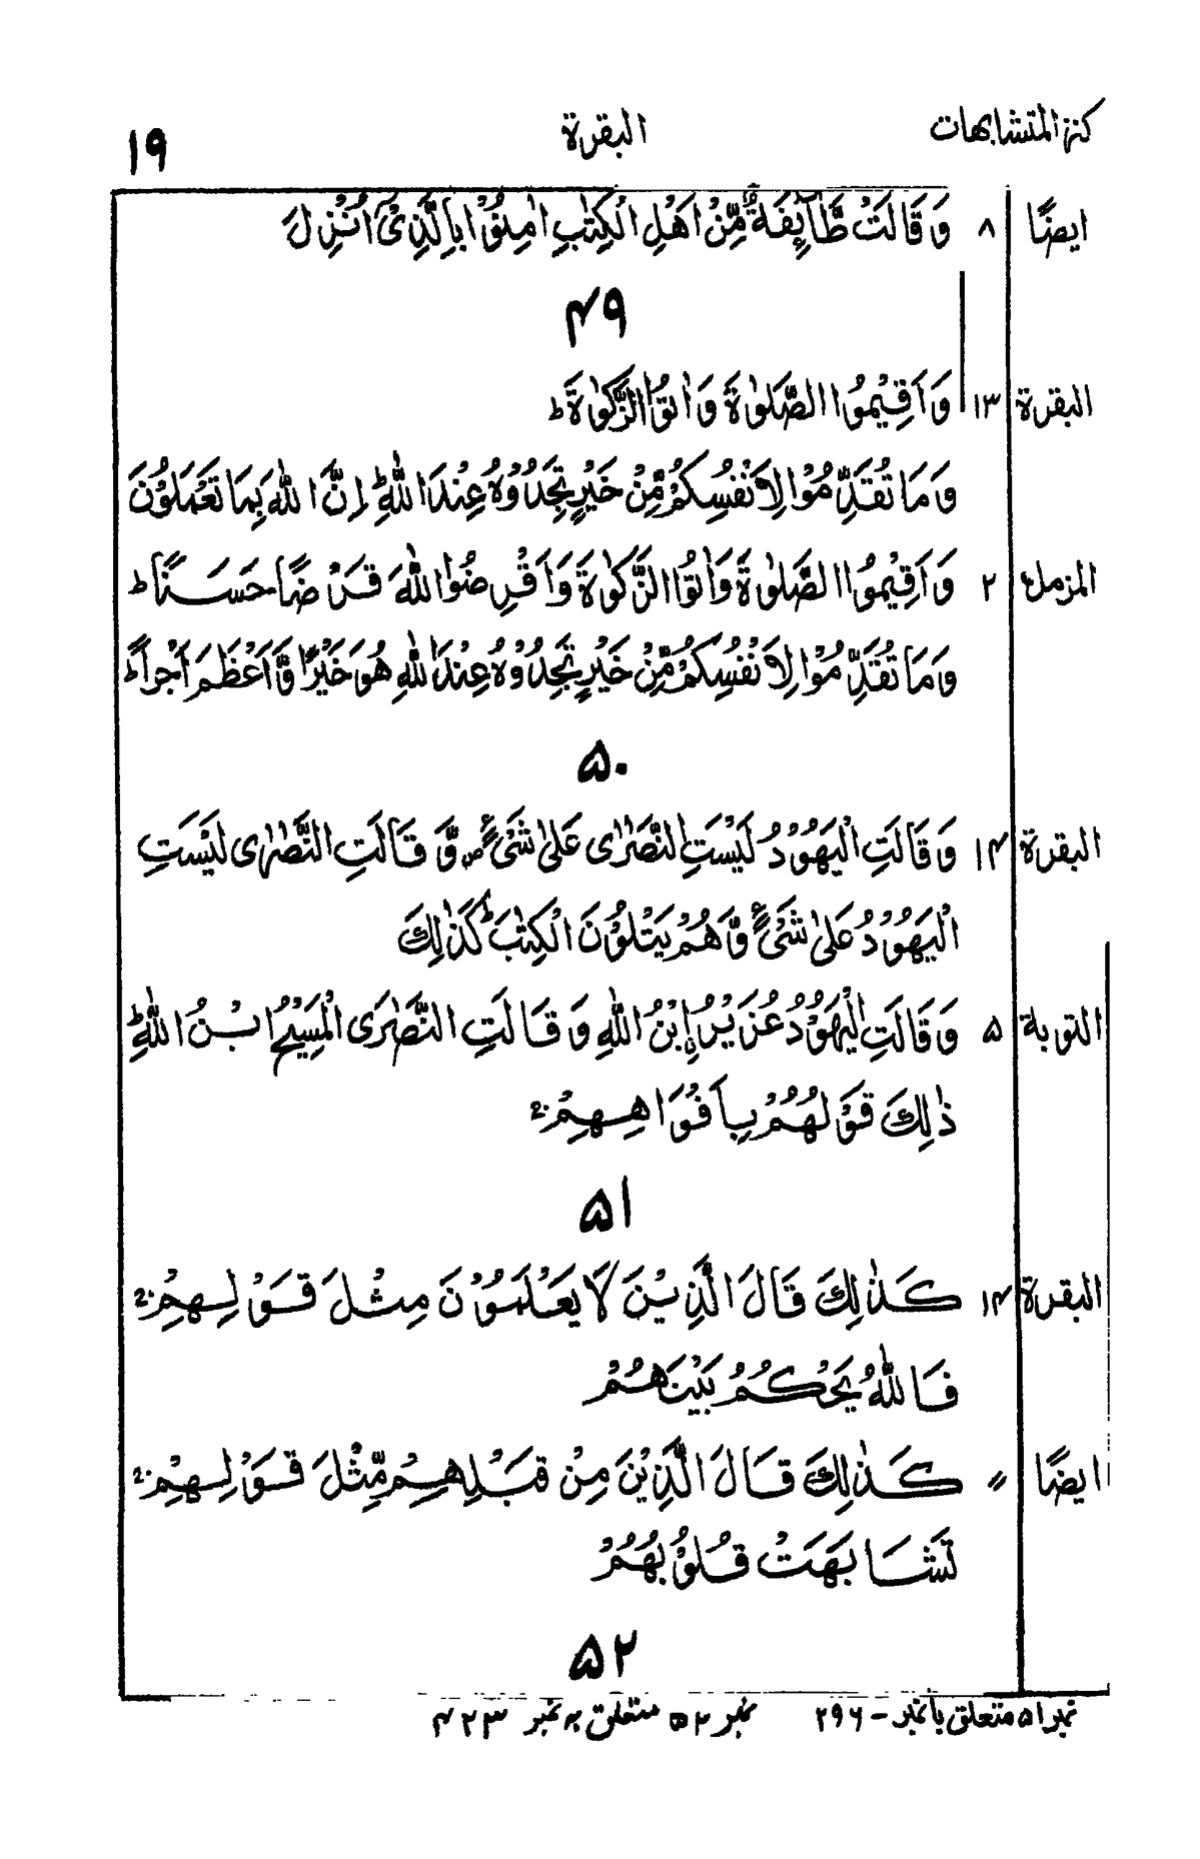 كنز المتشابهات البقرة ١٩
ايضًا ٨ وَقَالَتْ طَّآئِفَةٌ مِّنْ اَهْلِ الْكِتٰبِ اٰمِنُوْا بِالَّذِىْٓ اُنْزِلَ
۴۹
البقرة ١٣ وَاَقِيْمُوا الصَّلٰوةَ وَاٰتُوا الزَّكٰوةَ ط
وَمَا تُقَدِّمُوْا لِاَنْفُسِكُمْ مِّنْ خَيْرٍ تَجِدُوْهُ عِنْدَ اللّٰهِ ط اِنَّ اللّٰهَ بِمَا تَعْمَلُوْنَ
المزمل ٢ وَاَقِيْمُوا الصَّلٰوةَ وَاٰتُوا الزَّكٰوةَ وَاَقْرِضُوا اللّٰهَ قَرْضًا حَسَنًا ط
وَمَا تُقَدِّمُوْا لِاَنْفُسِكُمْ مِّنْ خَيْرٍ تَجِدُوْهُ عِنْدَ اللّٰهِ هُوَ خَيْرًا وَّاَعْظَمَ اَجْرًا ط
۵۰
البقرة ١۴ وَقَالَتِ الْيَهُوْدُ لَيْسَتِ النَّصٰرٰى عَلٰى شَىْءٍ ص وَّقَالَتِ النَّصٰرٰى لَيْسَتِ
الْيَهُوْدُ عَلٰى شَىْءٍ وَّهُمْ يَتْلُوْنَ الْكِتٰبَ ط كَذٰلِكَ
التوبة ۵ وَقَالَتِ الْيَهُوْدُ عُزَيْرُ اِبْنُ اللّٰهِ وَقَالَتِ النَّصٰرَى الْمَسِيْحُ ابْنُ اللّٰهِ ط
ذٰلِكَ قَوْلُهُمْ بِاَفْوَاهِهِمْ ج
۵۱
البقرة ١۴ كَذٰلِكَ قَالَ الَّذِيْنَ لَا يَعْلَمُوْنَ مِثْلَ قَوْلِهِمْ ج
فَاللّٰهُ يَحْكُمُ بَيْنَهُمْ
ايضًا 〃 كَذٰلِكَ قَالَ الَّذِيْنَ مِنْ قَبْلِهِمْ مِّثْلَ قَوْلِهِمْ ج
تَشَابَهَتْ قُلُوْبُهُمْ
۵۲
نمبر ۵۱ متعلق بانمبر - ٢٩٦ نمبر ۵۲ متعلق بہ نمبر ۴۲۳